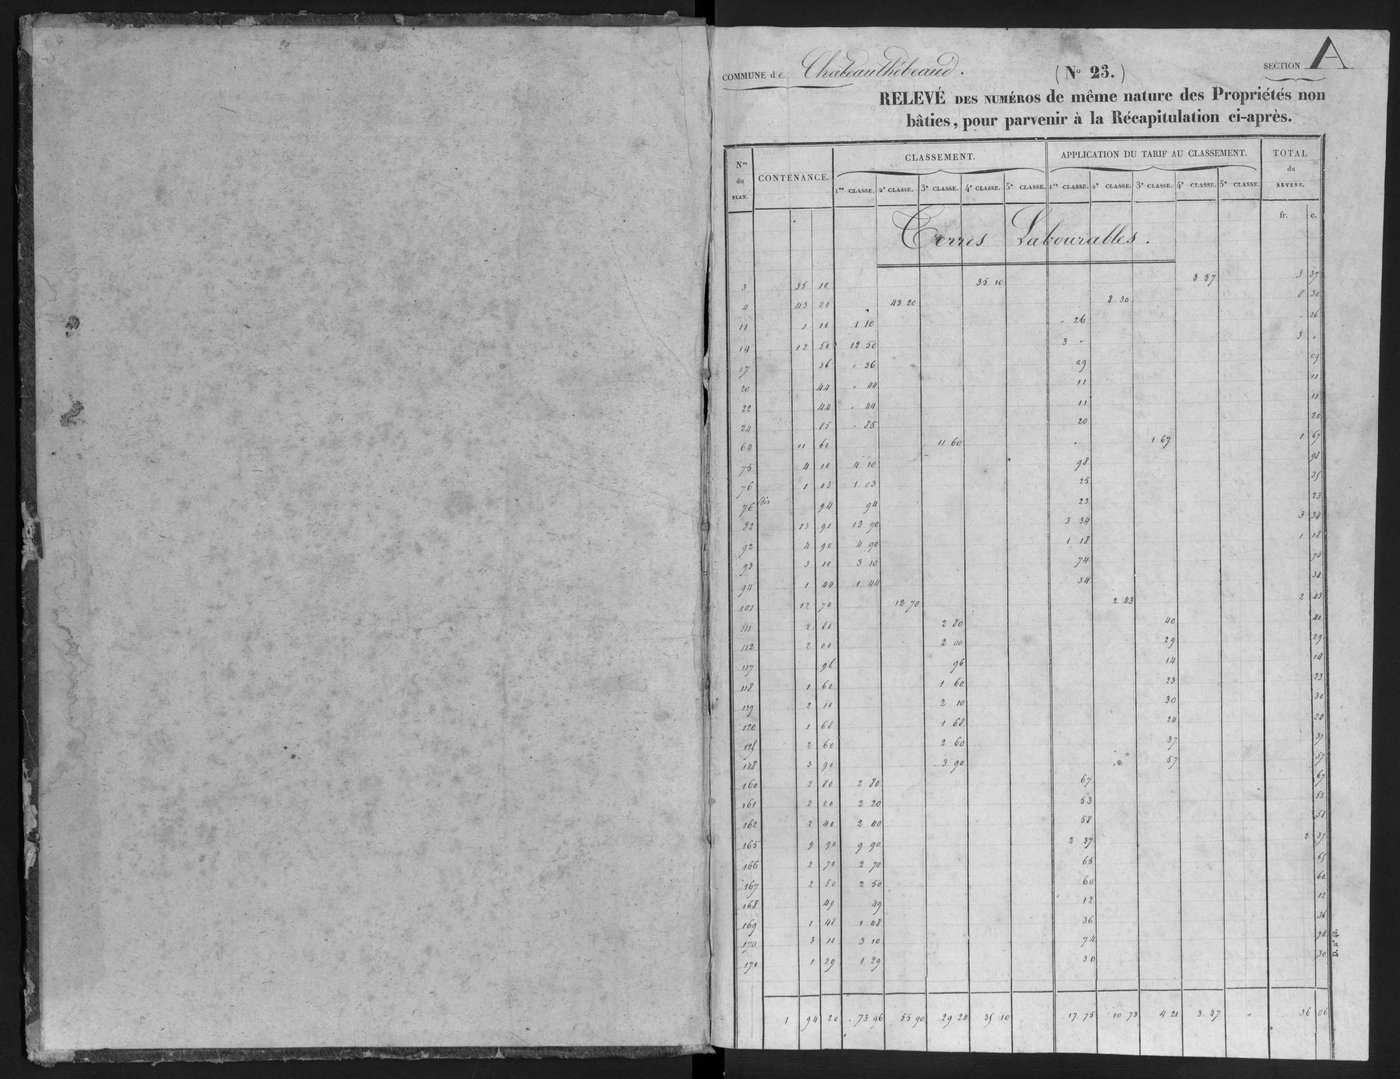 COMMUNE de Chateauthébaud. (No 23.) SECTION A
RELEVÉ DES NUMÉROS de même nature des Propriétés non
bâties, pour parvenir à la Récapitulation ci-après.
Nos du PLAN. CONTENANCE. CLASSEMENT. APPLICATION DU TARIF AU CLASSEMENT. TOTAL du REVENU.
1re CLASSE. 2e CLASSE. 3e CLASSE. 4e CLASSE. 5e CLASSE. 1re CLASSE. 2e CLASSE. 3e CLASSE. 4e CLASSE. 5e CLASSE.
fr. c.
Terres Labourables.
3 35 10 35 10 3 37 3 37
4 43 20 43 20 8 30 8 30
11 1 10 1 10 " 26 " 26
14 12 50 12 50 3 " 3 "
17 36 " 36 09 09
20 44 " 44 11 11
22 44 " 44 11 11
24 85 " 85 20 20
64 11 60 11 60 " 1 67 1 67
75 4 10 4 10 98 98
76 1 03 1 03 25 25
76 bis 94 94 23 23
82 13 90 13 90 3 34 3 34
92 4 90 4 90 1 18 1 18
93 3 10 3 10 74 74
94 1 44 1 44 34 34
101 12 70 12 70 2 43 2 43
111 2 80 2 80 40 40
112 2 00 2 00 29 29
117 96 96 14 14
118 1 60 1 60 23 23
119 2 10 2 10 30 30
120 1 68 1 68 24 24
121 2 60 2 60 37 37
148 3 90 3 90 57 57
160 2 80 2 80 67 67
161 2 20 2 20 53 53
162 2 40 2 40 58 58
165 9 90 9 90 2 37 2 37
166 2 70 2 70 65 65
167 2 50 2 50 60 60
168 49 49 12 12
169 1 48 1 48 36 36
170 3 10 3 10 74 74
171 1 29 1 29 30 30
1 94 20 73 96 55 90 29 24 35 10 17 75 10 73 4 21 3 37 " 36 06